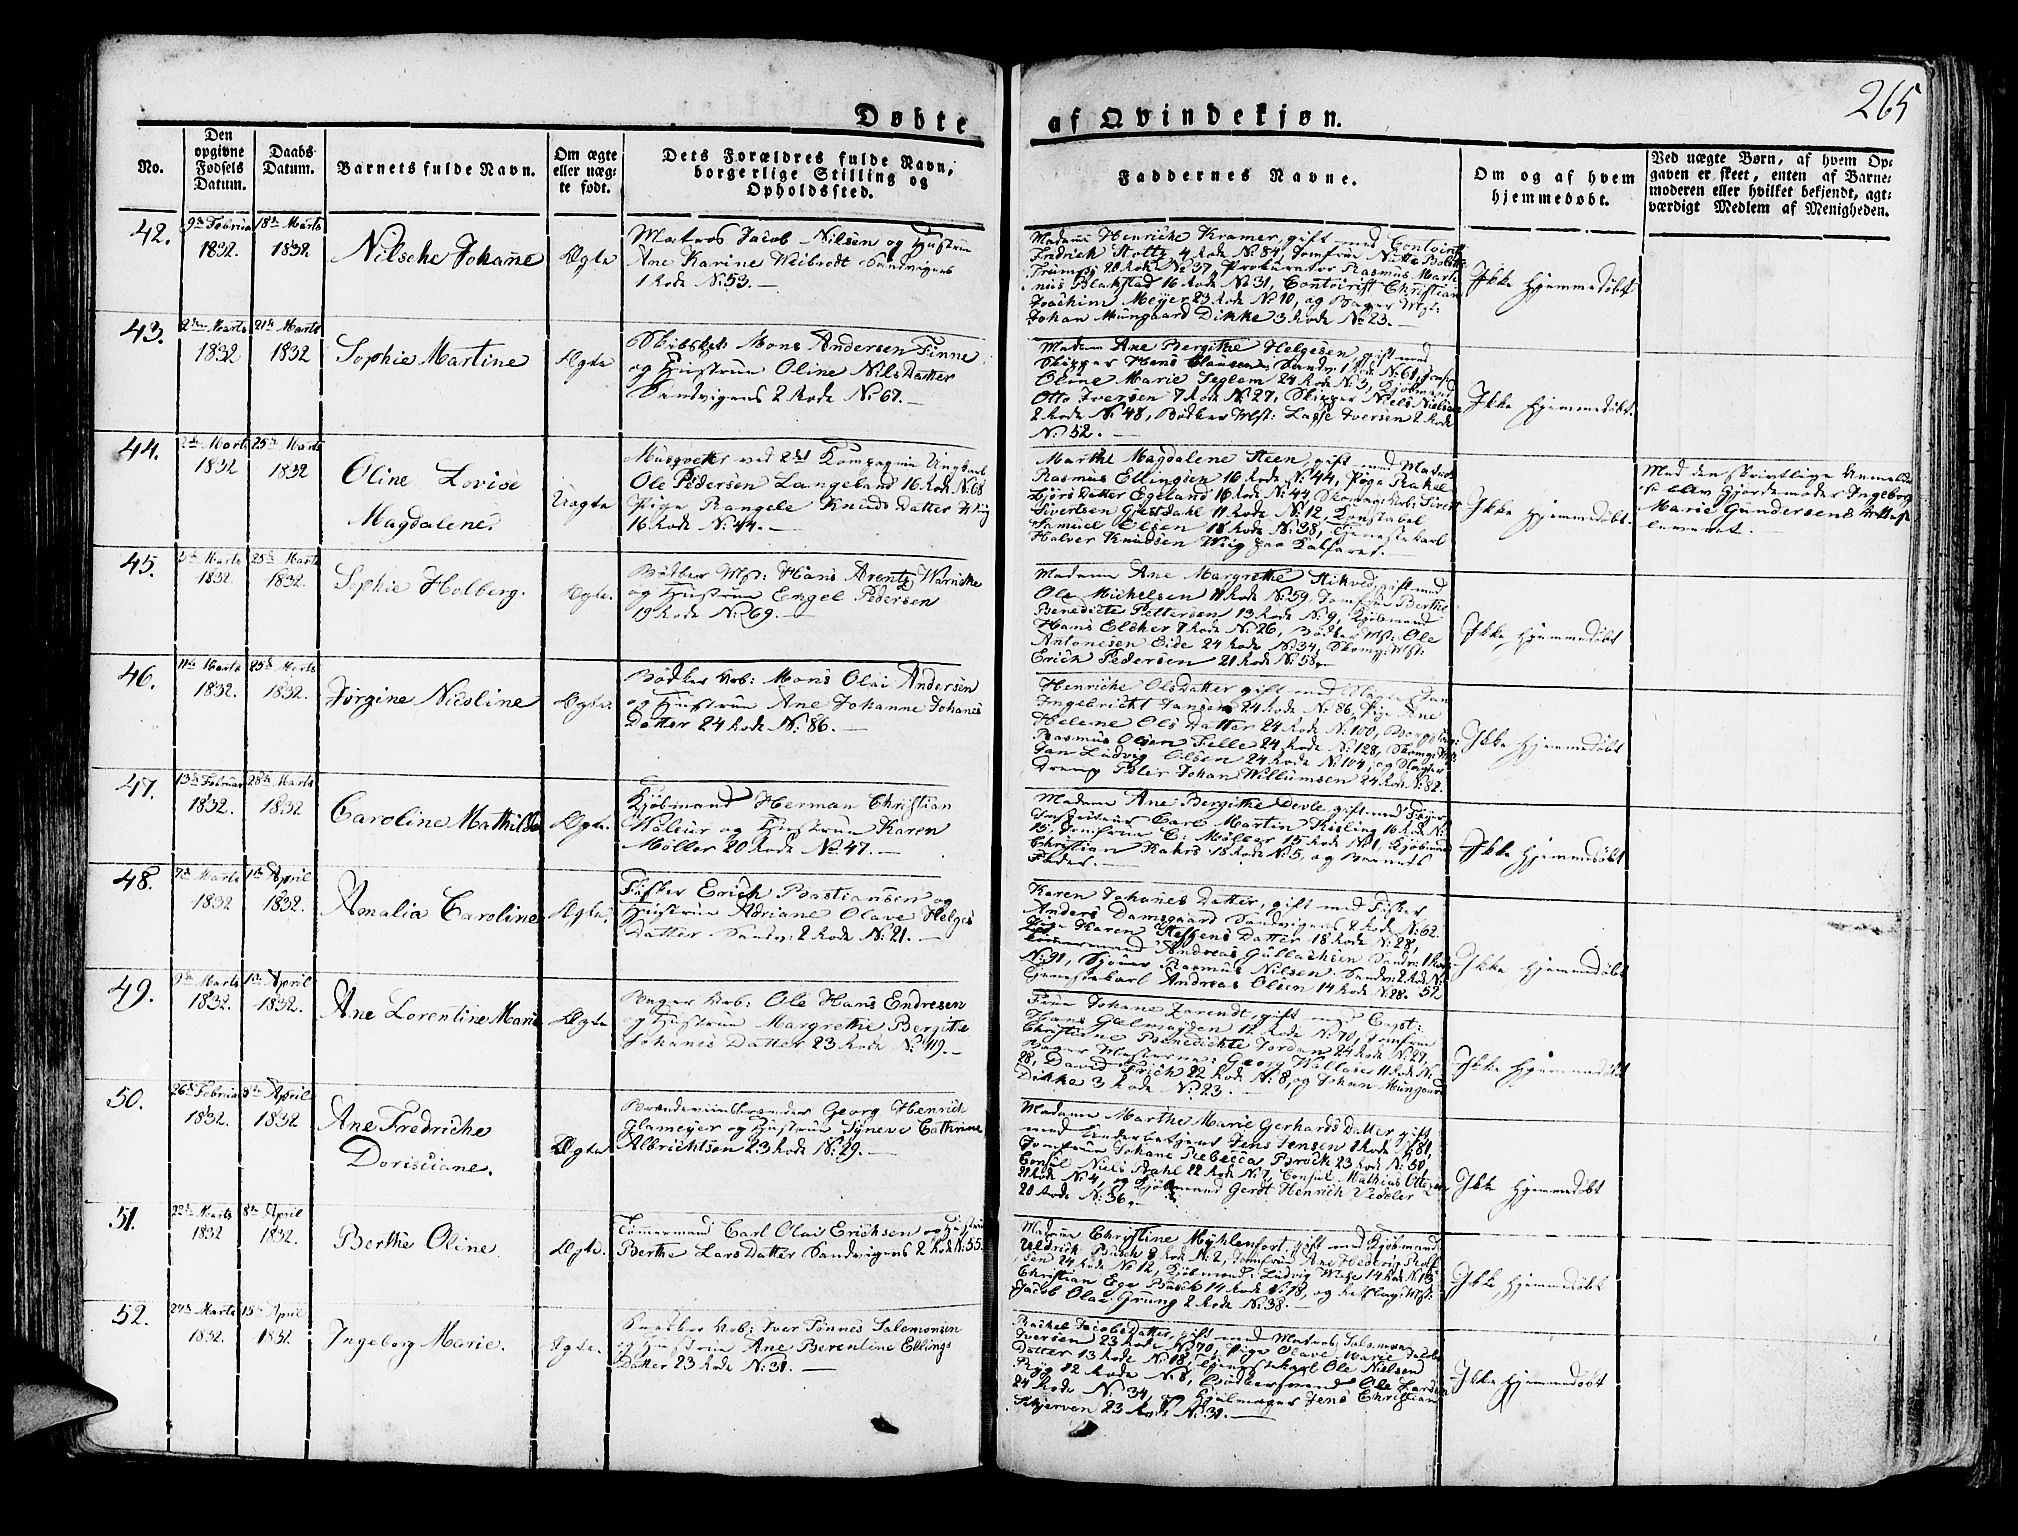 265
Døbte af Qvindekjøn.
No.
Den opgivne Fødsels Datum.
Daabs Datum.
Barnets fulde Navn.
Om ægte eller uægte født.
Dets Forældres fulde Navn, borgerlige Stilling og Opholdssted.
Faddernes Navne.
Om og af hvem hjemmedøbt.
Ved uægte Børn, af hvem Opgaven er skeet, enten af Barnemoderen eller hvilket bekjendt, agtværdigt Medlem af Menigheden.
42.
9de Februa 1832.
18de Marts 1832
Nilsche Johanne
Ægte
Matros Jacob Nilsen og Hustrue
Ane Karine Weibrodt Sandvigens
1 Rode No 53.
Madame Henriche Kramer gift med Contoirist
Fredrich Stoltz 4 Rode No 84, Jomfrue Nitte Bolette
Trumpy 20 Rode No 37, Prokurator Rasmus Marti
nus Blakstad 16 Rode No 31, Contoirist Christian
Joachim Meyer 23 Rode No 10, og Bager Mst:
Johan Mungaard Dikke 3 Rode No 23.
Ikke hjemmedøbt
43.
2den Marts 1832
21de Marts 1832
Sophie Martine
Ægte
Skibskpt: Mons Andersen Finne
og Hustrue Oline Nils Datter
Sandvigens 2 Rode No 67.
Madam Ane Bergithe Helgesen, gift med
Skipper Hans Clausen, Sandv: 1 Rode No 61, Jomf:
Oline Marie Teglem 24 Rode No 3, Kjøbmand
Otto Iversen 7 Rode No 27, Skipper Niels Nielsen
2 Rode No 48, Bødker Mst: Lasse Iversen 2 Rode
No 52.
Ikke hjemmedøbt.
44.
2den Marts 1832
25de Marts 1832
Oline Lovise
Magdalene.
Uægte
Musqveteer ved 2det Kompagnie Ungkarl
Ole Pedersen Langeland 16 Rode No 68
Pige Rangele Knuds Datter Wiig
16 Rode No 44.
Marthe Magdalene Steen, gift med Matros
Rasmus Ellingsen 16 Rode No 44, Pige Rakel
Sjørs Datter Egeland 16 Rode No 44, Skomag: Sivert
Sivertsen Giestdahl 11 Rode No 12, Constabel
Samuel Olsen 18 Rode No 38, Tjenestekarl
Halver Knudsen Wiig paa Kalfaret.
Ikke hjemmedøbt.
Med den skrivtlige Anmeldel
se blev Gjordemoder Ingeborg
Marie Gundersens Attest
leveret.
45.
Marts 1832.
25de Marts 1832.
Sophie Holberg.
Ægte.
Bødker Mst: Hans Arentz Warncke
og Hustrue Engel Pedersen
19 Rode No 69.
Madame Ane Margrethe Stikved, gift med
Ole Michelsen 11 Rode No 59, Jomfrue Berthe
Benedicte Pettersen 13 Rode No 9, Kjøbmand
Hans Eldher 7 Rode No 26, Bødker Mst: Ole
Antonesen Eide 24 Rode No 34, Skomag: Mst:
Erich Pedersen 21 Rode No 58.
Ikke hjemmedøbt
46.
11te Marts 1832.
25de Marts 1832.
Jørgine Nicoline
Ægte.
Bødker Mons Olai Andersen
og Hustrue Ane Johanne Johanes
Datter 24 Rode No 86.
Henriche Ols Datter gift med
Ingebricht Jansen 24 Rode No 86, Pige Ane
Helene Ols Datter 24 Rode No 100,
Rasmus Olsen Felle 24 Rode No 128, Skomag: Mst:
Jan Ludvig Olsen 24 Rode No 104, og Slagter
dreng Peter Johan Willumsen 24 Rode No 82.
Ikke hjemmedøbt
47.
13de Februar 1832.
28de Marts 1832
Caroline Mathilde
Ægte.
Kjøbmand Herman Christian
Waleur og Hustrue Karen
Møller 20 Rode No 47.
Madame Ane Bergithe Devle, gift med
Carl Martin Kisling 16 Rode No
15, Jomfrue C: Møller 15 Rode No 1, Kjøbmd
Christian Kahrs 18 Rode No 5, og Barnets
Fader.
Ikke hjemmedøbt
48.
7de Marts 1832
1ste April 1832.
Amalia Caroline
Ægte.
Fisker Erich Bastiansen og
Hustrue Adriane Olave Helges
Datter Sandv: 2 Rode No 21.
Karen Johanes Datter, gift med Fisker
Anders Damsgaard Sandvigens 2 Rode No 62.
Pige Karen Steffens Datter 18 Rode No 28,
Tømmermand Andreas Gullachsen Sandv: 1 Rode
No 91, Rasmus Nilsen Sandv: 2 Rode No 52
Tjenestekarl Andreas Olsen 14 Rode No 28.
Ikke hjemmedøbt
49.
9de Marts 1832.
1ste April 1832.
Ane Lorentine Marie
Ægte
Bager Ole Hans Endresen
og Hustrue Margrethe Bergithe
Johanes Datter 23 Rode No 49.
Frue Johane Zarendt, gift med Capt:
Hans Gielmøyden 12 Rode No 70, Jomfrue
Christine Benedichte Jordan 24 Rode No 27,
Bager Mesterne: Georg Wallace 11 Rode No
28, David Frich 22 Rode No 8, og Johan Mungaard
Dikke 3 Rode No 23.
Ikke hjemmedøbt
50.
26de Februar 1832.
8de April 1832
Ane Fredriche
Dorisciane.
Ægte
Brændeviinbrænder Georg Henrich
Glameyer og Hustrue Syneve Cathrine
Albrichtson 23 Rode No 29.
Madame Marthe Marie Gerhards Datter gift
med Underbetjent Jens Jensen 1 Rode No 81,
Jomfrue Johane Rebecca Brock 23 Rode No 50,
Consul Niels Stahl 22 Rode No 7, Consul Mathias Ottesen
21 Rode No 4, og Kjøbmand Gerdt Henrich Vedeler
20 Rode No 36.
Ikke hjemmedøbt
51.
22de Marts 1832
8de April 1832.
Berthe Oline.
Ægte.
Tømmermand Carl Olai Erichsen og Hustrue
Berthe Lars Datter Sandvigens 2 Rode No 55.
Madame Christine Myhlenfort, gift med Kjøbmand
Uldrich Busch 8 Rode No 2, Jomfrue Ane Hedevig Rolf
sen 24 Rode No 12, Kjøbmand: Ludvig Wiese 14 Rode No 15,
Christian Ege Busch 14 Rode No 18, og
Jacob Olai Grung 2 Rode No 38.
Ikke hjemmedøbt
52.
24de Marts 1832.
15de April 1832.
Ingeborg Marie.
Ægte.
Iver Tønnes Salomonsen
og Hustrue Ane Berentine Ellings
Datter 23 Rode No 31.
Rachel Jacobs Datter, gift med Matros Salomon
Iversen 23 Rode No 70, Pige Olave Marie Jacobs
Datter 13 Rode No 18, Tjenestekarl Ole Nielsen
Ryg 22 Rode No 8, Bødkersvend Ole Larsen
24 Rode No 34, og Hjulmager Jens Christian
Skjerven 23 Rode No 31.
Ikke hjemmedøbt